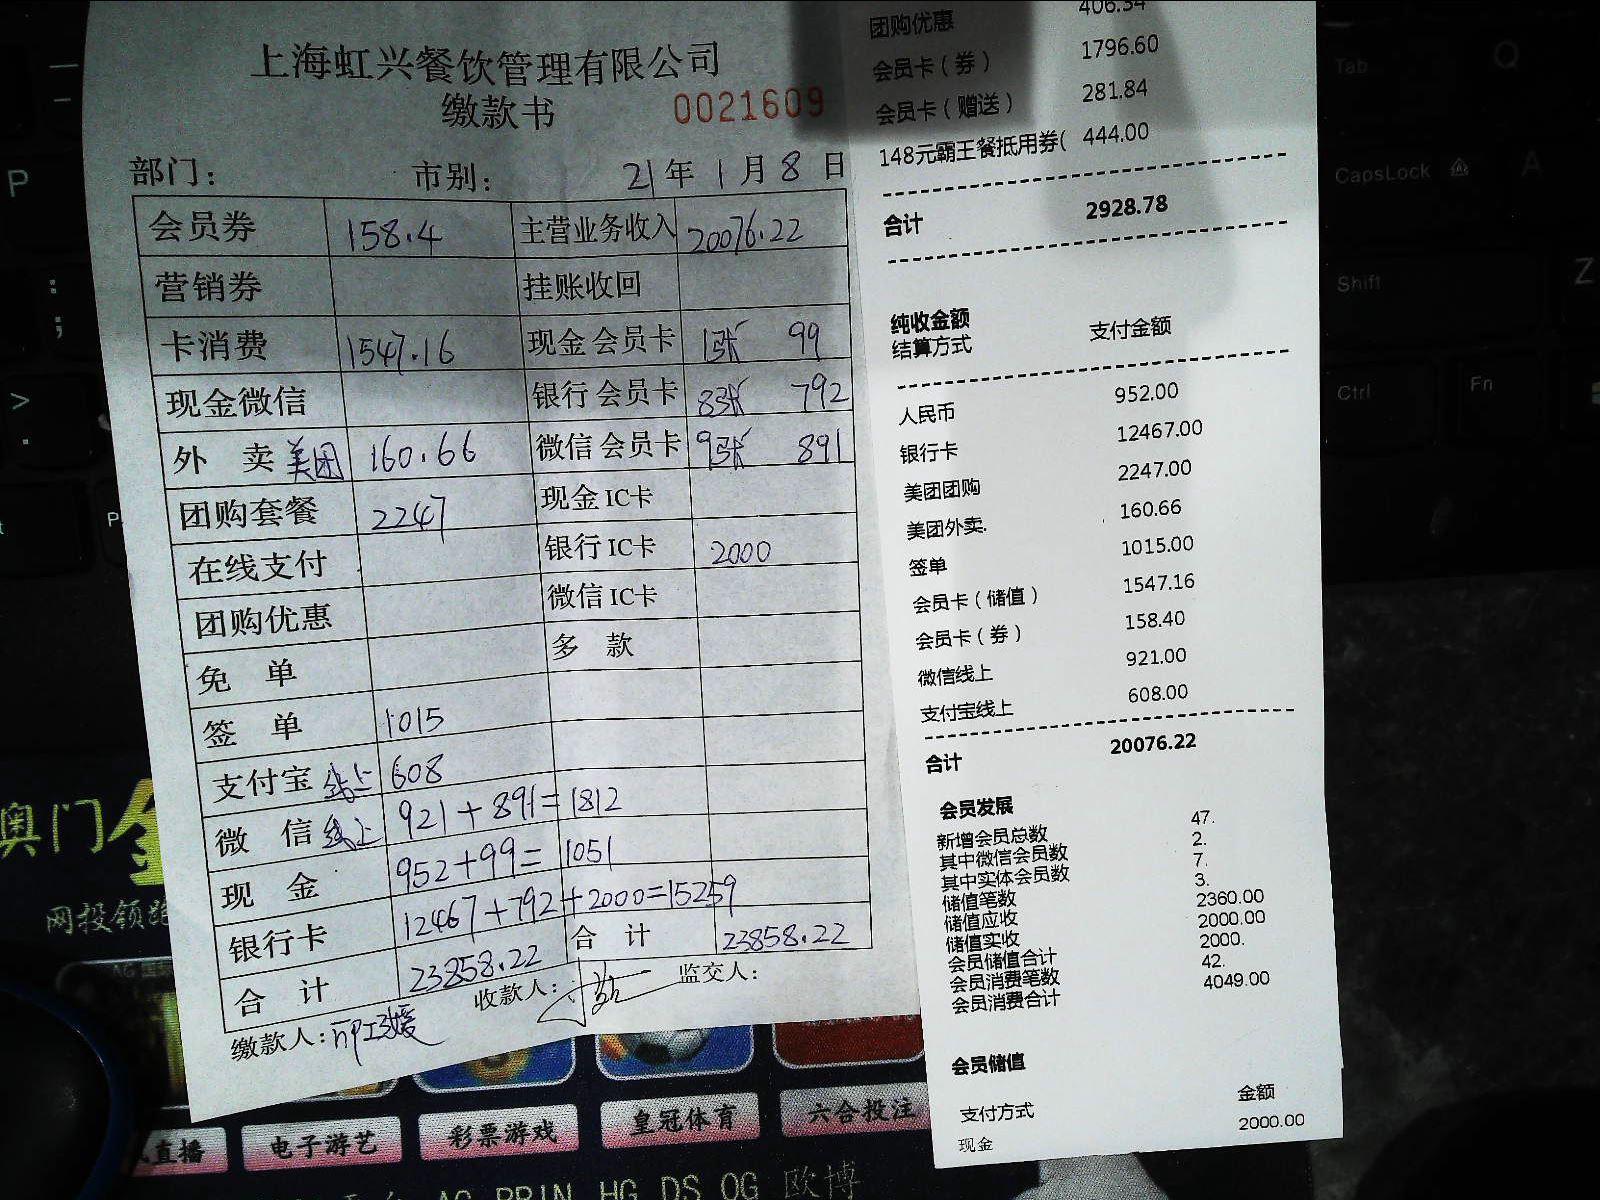 上海虹兴餐饮管理有限公司
缴款书 0021609
部门： 市别： 21年 1月 8日
会员券 158.4 主营业务收入 20076.22
营销券 挂账收回
卡消费 1547.16 现金会员卡 1张 99
现金微信 银行会员卡 8张 792
外 卖 美团 160.66 微信会员卡 9张 891
团购套餐 2247 现金IC卡
在线支付 银行IC卡 2000
团购优惠 微信IC卡
免 单 多 款
签 单 1015
支付宝 线上 608
微 信 线上 921+891=1812
现 金 952+99=1051
银行卡 12467+792+2000=15259
合 计 23858.22 合 计 23858.22
缴款人： 收款人： 监交人：
团购优惠 406.34
会员卡（券） 1796.60
会员卡（赠送） 281.84
148元霸王餐抵用券( 444.00
合计 2928.78
纯收金额
结算方式 支付金额
人民币 952.00
银行卡 12467.00
美团团购 2247.00
美团外卖. 160.66
签单 1015.00
会员卡（储值） 1547.16
会员卡（券） 158.40
微信线上 921.00
支付宝线上 608.00
合计 20076.22
会员发展
新增会员总数 47.
其中微信会员数 2.
其中实体会员数 7.
储值笔数 3.
储值应收 2360.00
储值实收 2000.00
会员储值合计 2000.
会员消费笔数 42.
会员消费合计 4049.00
会员储值
支付方式 金额
现金 2000.00
P
Tab Q
CapsLock A
Shift Z
Ctrl Fn
澳门
网投领
直播 电子游艺 彩票游戏 皇冠体育 六合投注
HG DS OG 欧博